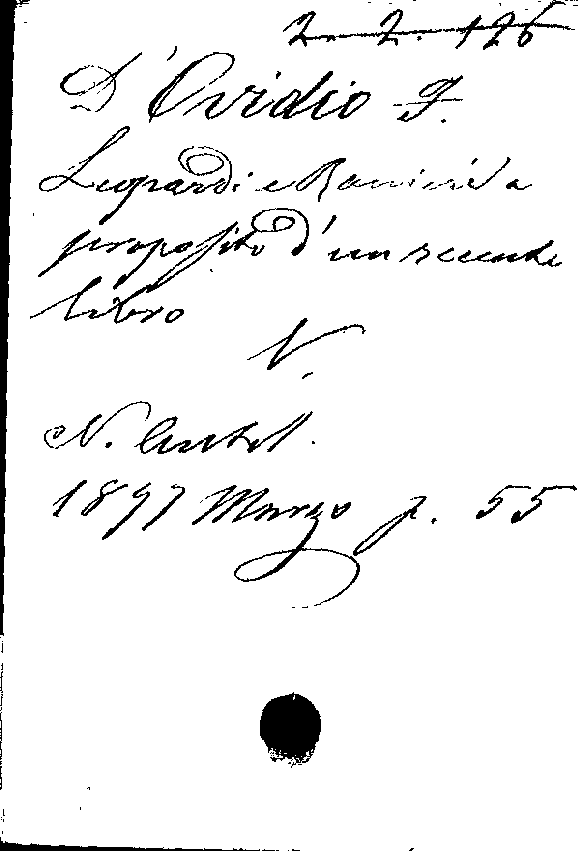 2. 2. 126
D'Ovidio F.
Leopardi e Ranieri a
proposito d'un recente
libro
V.
N. Antol.
1897 Marzo p. 55